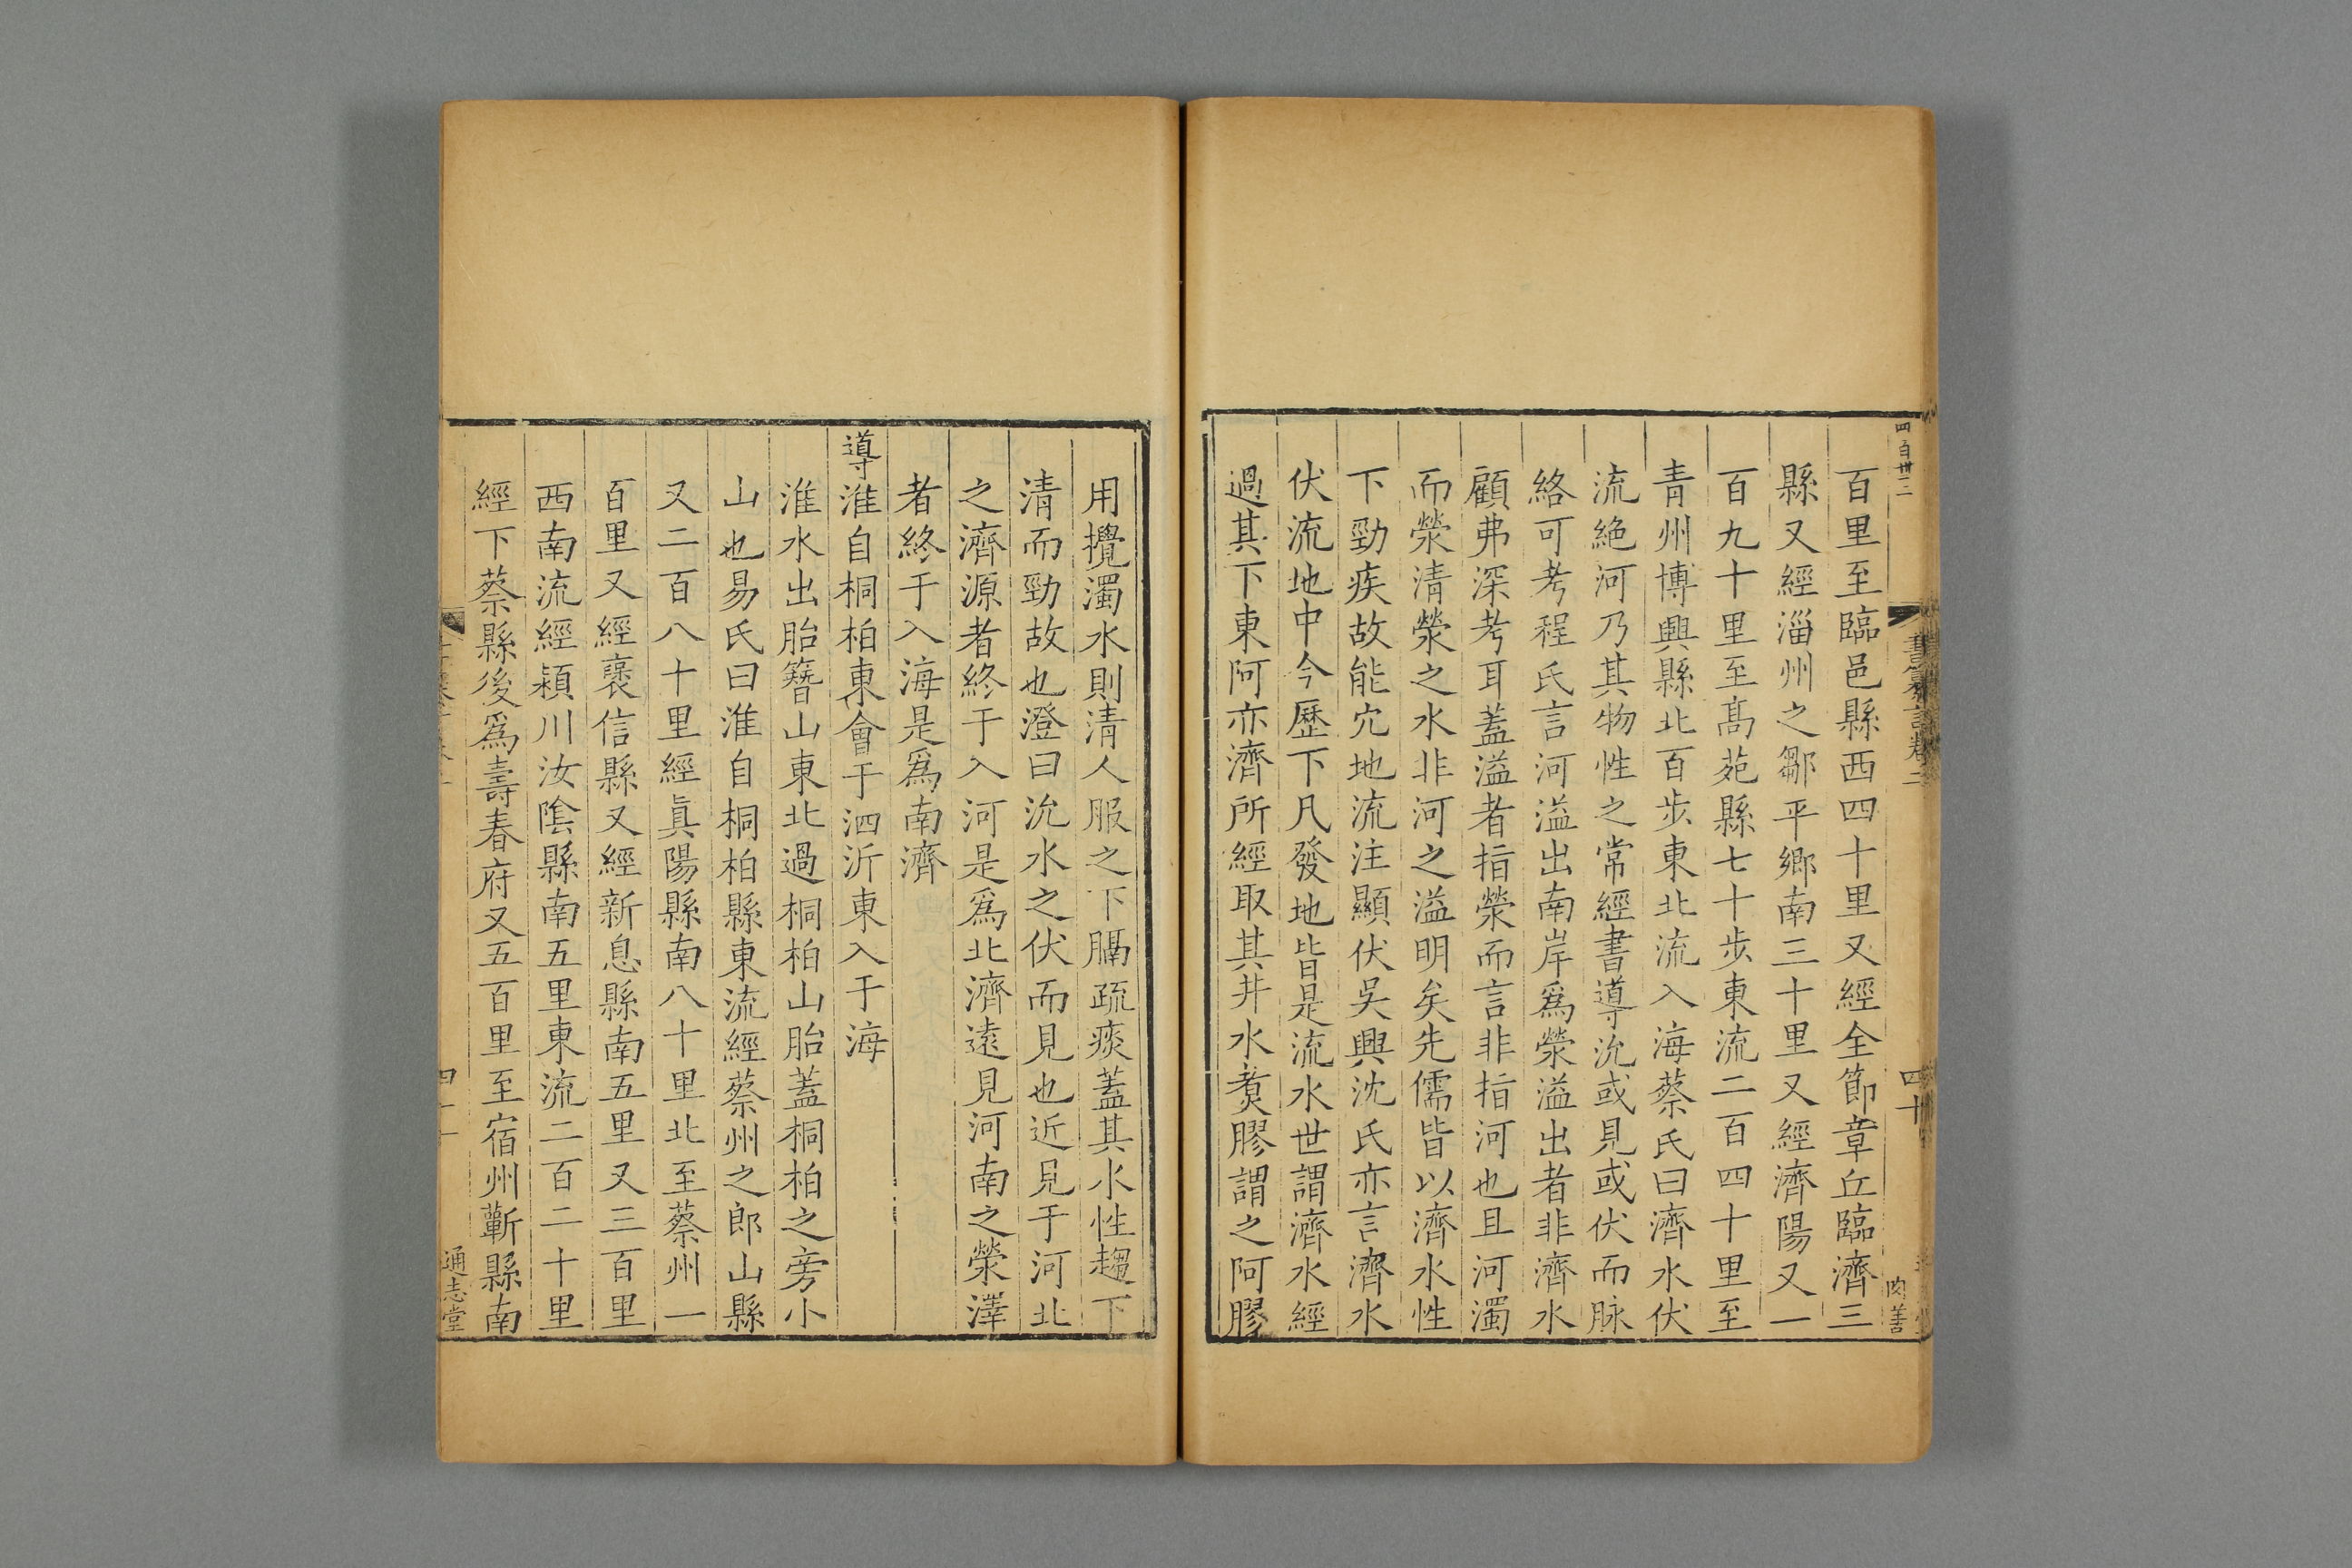 四百卅二
百里至臨邑縣西四十里又經全節章丘臨濟三
縣又經淄州之鄒平鄉南三十里又經濟陽又一
百九十里至髙苑縣七十步東流二百四十里至
青州博興縣北百步東北流入海蔡氏曰濟水伏
流絶河乃其物性之常經書導沇或見或伏而脉
絡可考程氏言河溢出南岸爲滎溢出者非濟水
顧弗深考耳蓋溢者指滎而言非指河也且河濁
而滎清滎之水非河之溢明矣先儒皆以濟水性
下勁疾故能穴地流注顯伏吳興沈氏亦言濟水
伏流地中今歷下凡發地皆是流水世謂濟水經
過其下東阿亦濟所經取其井水煑膠謂之阿膠
用攪濁水則清人服之下膈疏痰蓋其水性趨下
清而勁故也澄曰沇水之伏而見也近見于河北
之濟源者終于入河是爲北濟遠見河南之滎澤
者終于入海是爲南濟
導淮自桐柏東會于泗沂東入于海
淮水出胎簪山東北過桐柏山胎蓋桐柏之旁小
山也易氏曰淮自桐柏縣東流經蔡州之郎山縣
又二百八十里經眞陽縣南八十里北至蔡州一
百里又經襃信縣又經新息縣南五里又三百里
西南流經潁川汝陰縣南五里東流二百二十里
經下蔡縣後爲壽春府又五百里至宿州蘄縣南
通志堂